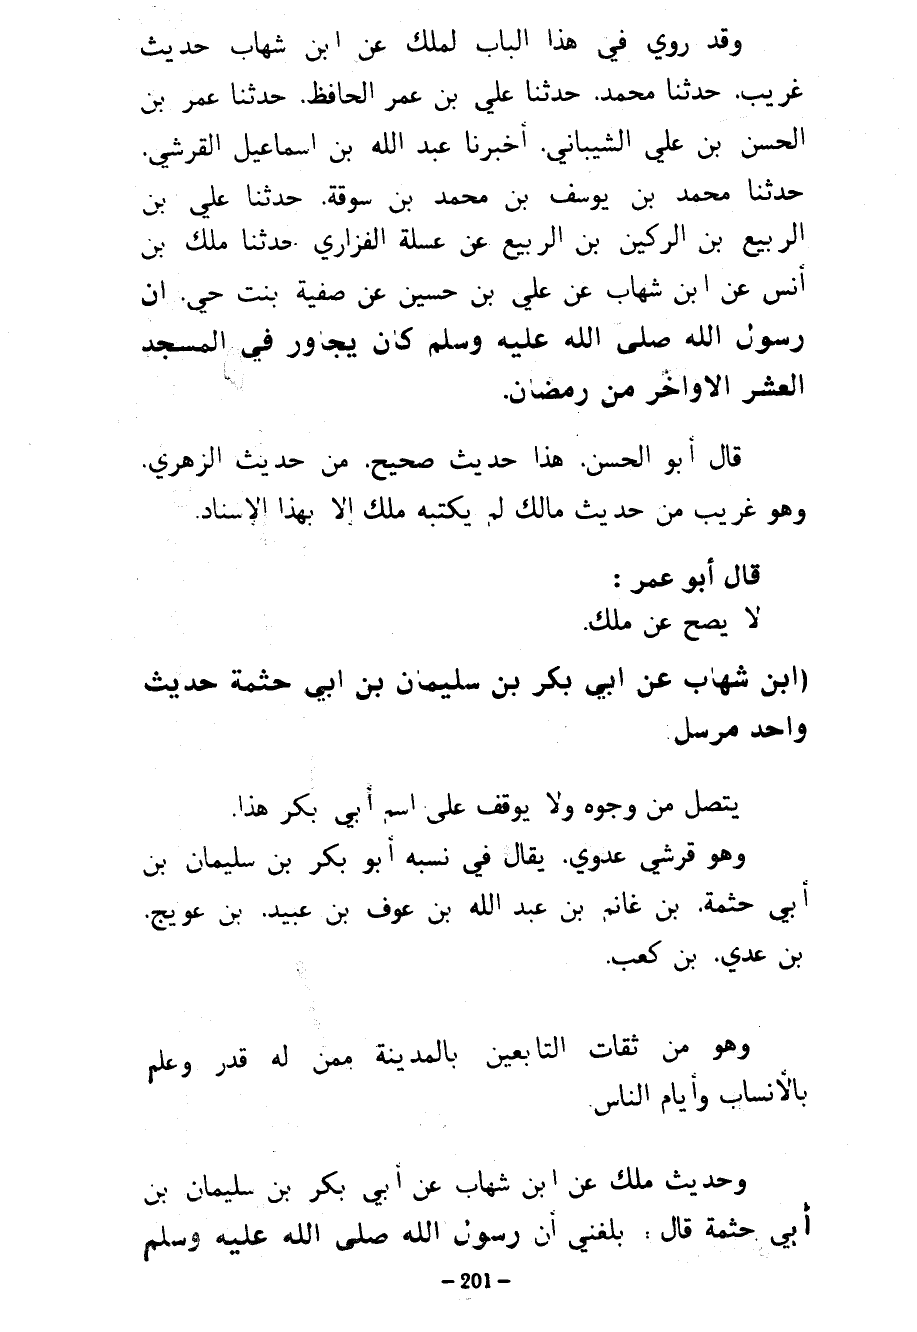 وقد روي في هذا الباب لملك عن ابن شهاب حديث
غريب. حدثنا محمد. حدثنا علي بن عمر الحافظ. حدثنا عمر بن
الحسن بن علي الشيباني. أخبرنا عبد الله بن اسماعيل القرشي.
حدثنا محمد بن يوسف بن محمد بن سوقة. حدثنا علي بن
الربيع بن الركين بن الربيع عن عسلة الفزاري حدثنا ملك بن
أنس عن ابن شهاب عن علي بن حسين عن صفية بنت حي. ان
رسول الله صلى الله عليه وسلم كان يجاور في المسجد
العشر الاواخر من رمضان.
قال أبو الحسن. هذا حديث صحيح. من حديث الزهري.
وهو غريب من حديث مالك لم يكتبه ملك إلا بهذا الإسناد.
قال أبو عمر :
لا يصح عن ملك.
(ابن شهاب عن ابي بكر بن سليمان بن ابي حثمة حديث
واحد مرسل
يتصل من وجوه ولا يوقف على اسم أبي بكر هذا.
وهو قرشي عدوي. يقال في نسبه أبو بكر بن سليمان بن
أبي حثمة. بن غانم بن عبد الله بن عوف بن عبيد. بن عويج.
بن عدي. بن كعب.
وهو من ثقات التابعين بالمدينة ممن له قدر وعلم
بالأنساب وأيام الناس.
وحديث ملك عن ابن شهاب عن أبي بكر بن سليمان بن
أبي حثمة قال : بلغني أن رسول الله صلى الله عليه وسلم
– 201 –